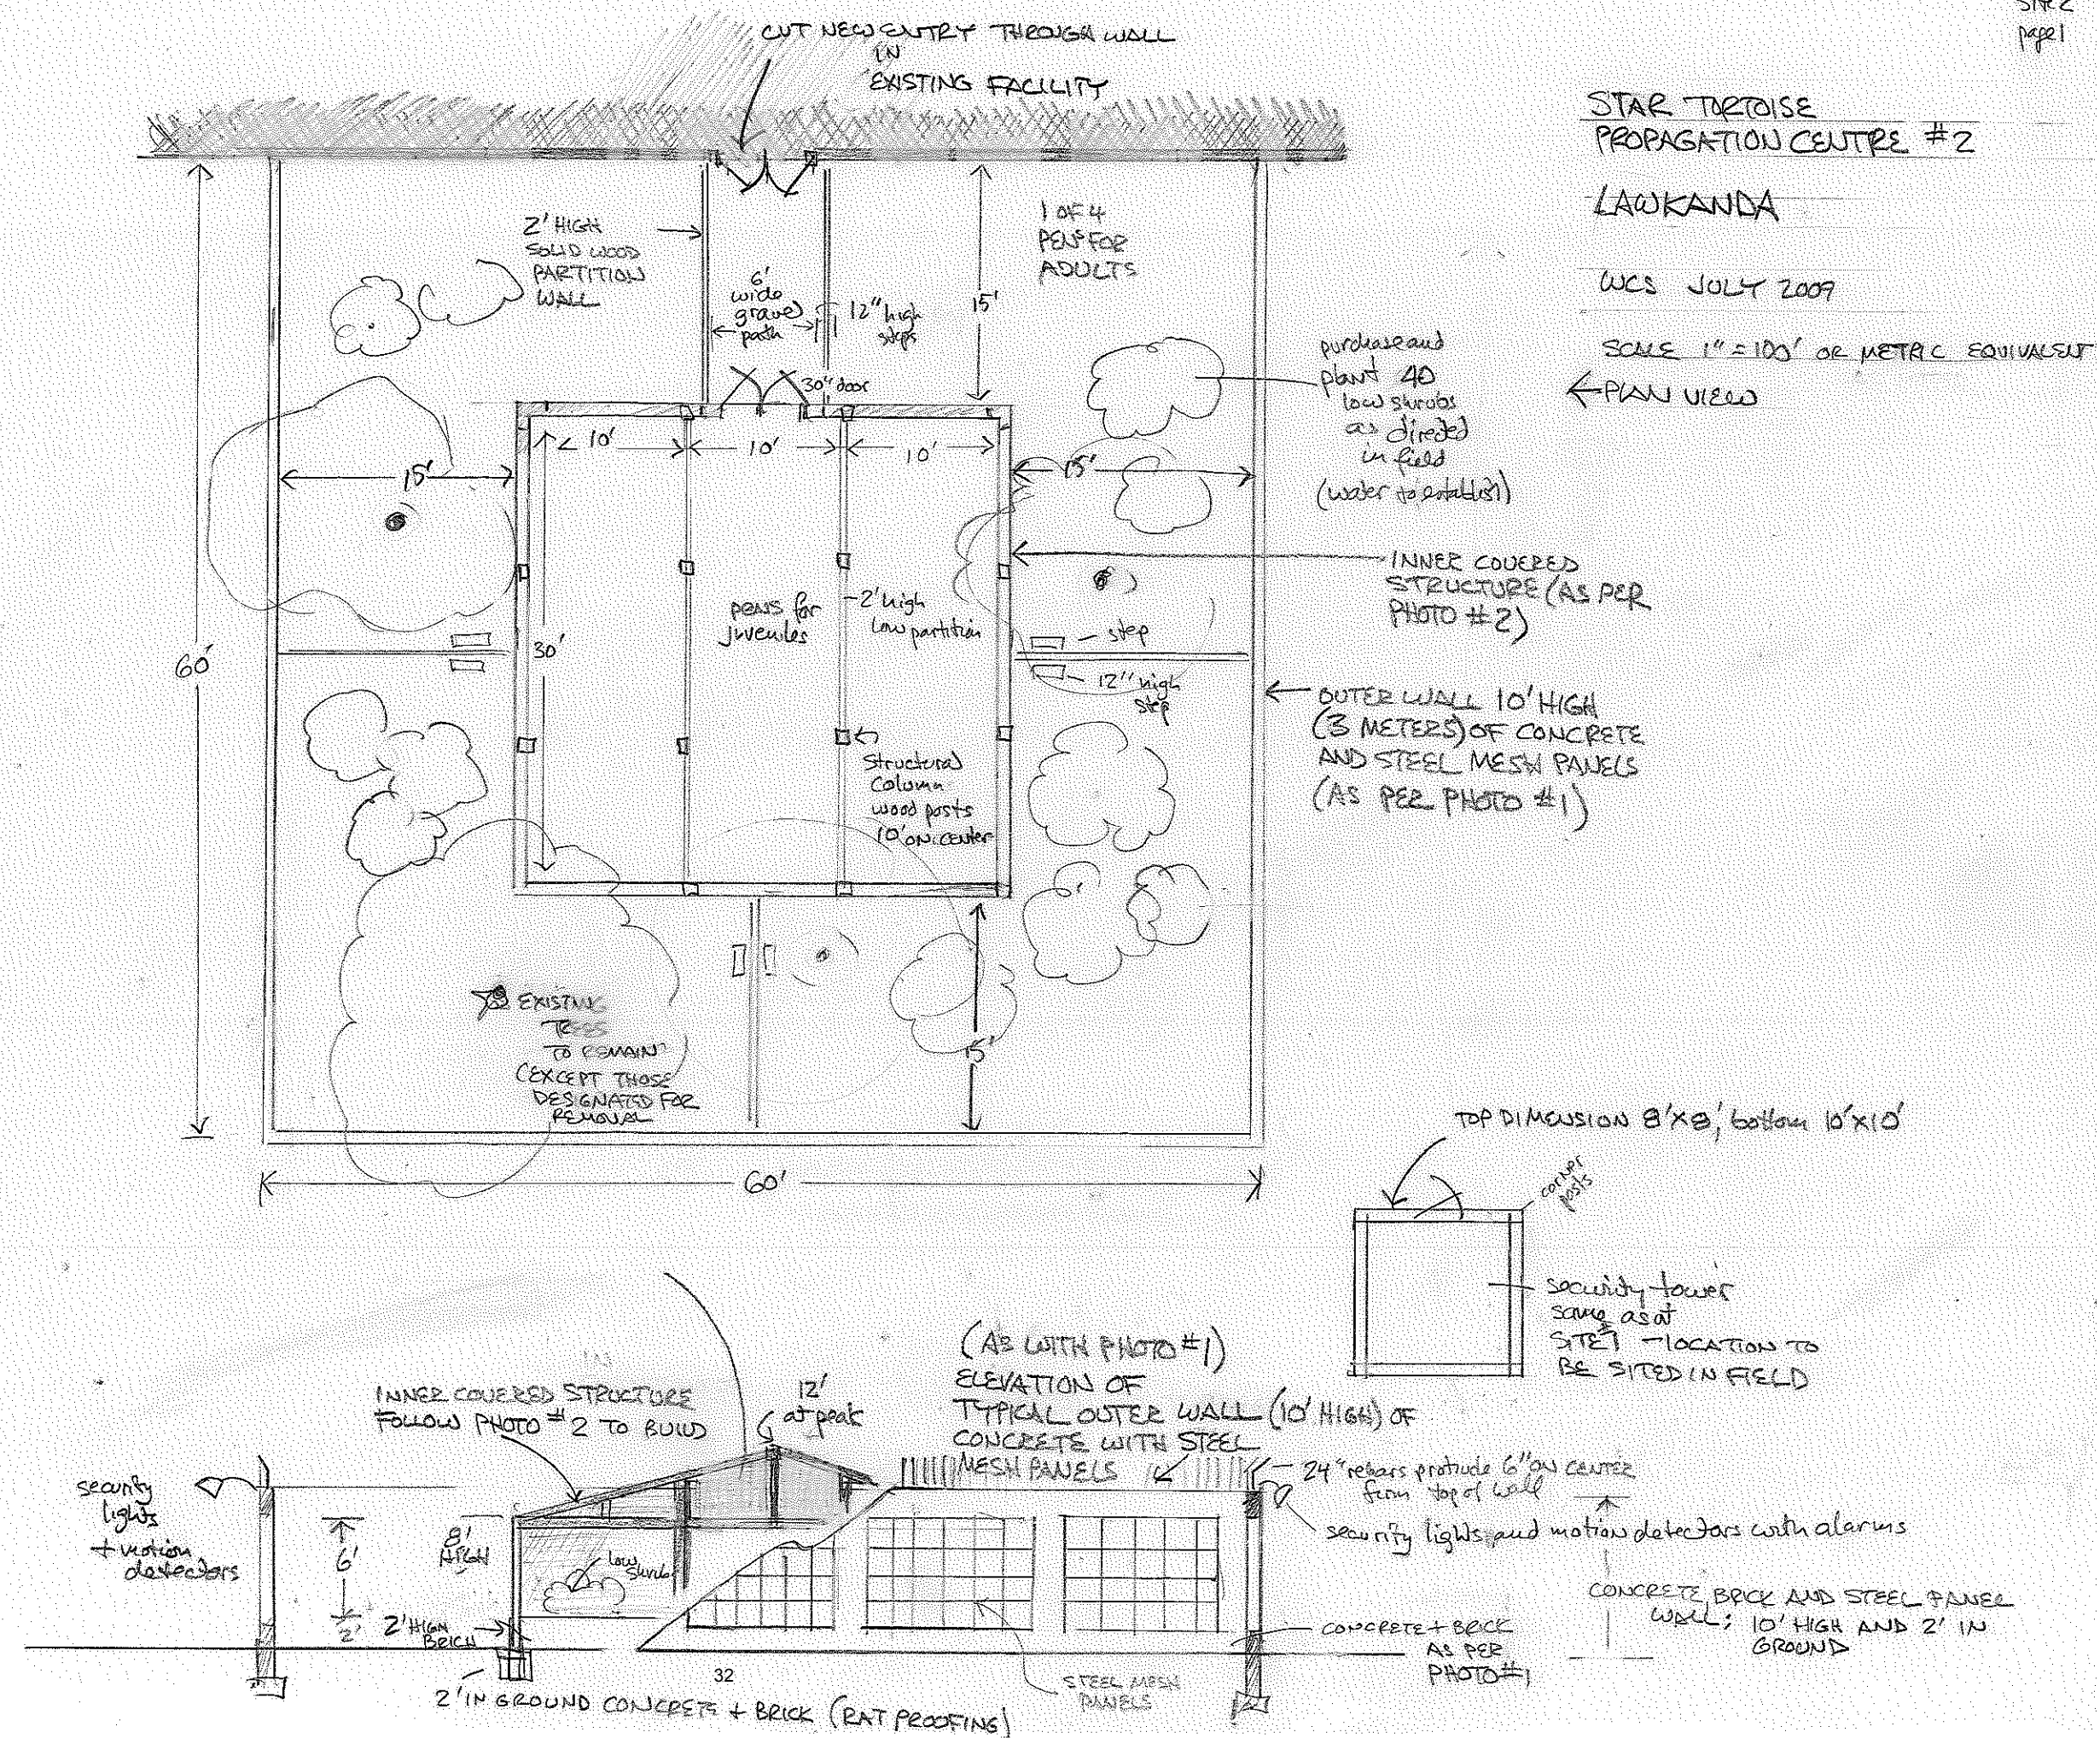 SITE 2
page 1
CUT NEW ENTRY THROUGH WALL
IN
EXISTING FACILITY
STAR TORTOISE
PROPAGATION CENTRE #2
LAWKANDA
WCS JULY 2009
SCALE 1" = 100' OR METRIC EQUIVALENT
← PLAN VIEW
2' HIGH
SOLID WOOD
PARTITION
WALL
6'
wide
gravel
path
12" high
steps
1 OF 4
PENS FOR
ADULTS
15'
30" door
purchase and
plant 40
low shrubs
as directed
in field
(water to establish)
10'
10'
10'
15'
15'
INNER COVERED
STRUCTURE (AS PER
PHOTO #2)
pens for
juveniles
2' high
low partition
step
12" high
step
30'
60'
OUTER WALL 10' HIGH
(3 METERS) OF CONCRETE
AND STEEL MESH PANELS
(AS PER PHOTO #1)
Structural
Column
wood posts
10' ON CENTER
EXISTING
TREES
TO REMAIN
(EXCEPT THOSE
DESIGNATED FOR
REMOVAL
15'
60'
TOP DIMENSION 8'X8', bottom 10'X10'
corner
posts
security tower
same as at
SITE #1 - LOCATION TO
BE SITED IN FIELD
IN
INNER COVERED STRUCTURE
FOLLOW PHOTO #2 TO BUILD
12'
at peak
(AS WITH PHOTO #1)
ELEVATION OF
TYPICAL OUTER WALL (10' HIGH) OF
CONCRETE WITH STEEL
MESH PANELS
24" rebars protrude 6" ON CENTER
from top of wall
security lights and motion detectors with alarms
security
lights
+ motion
detectors
6'
2'
8'
HIGH
low
shrub
2' HIGH
BRICK
CONCRETE, BRICK AND STEEL PANEL
WALL; 10' HIGH AND 2' IN
GROUND
CONCRETE + BRICK
AS PER
PHOTO #1
STEEL MESH
PANELS
32
2' IN GROUND CONCRETE + BRICK (RAT PROOFING)